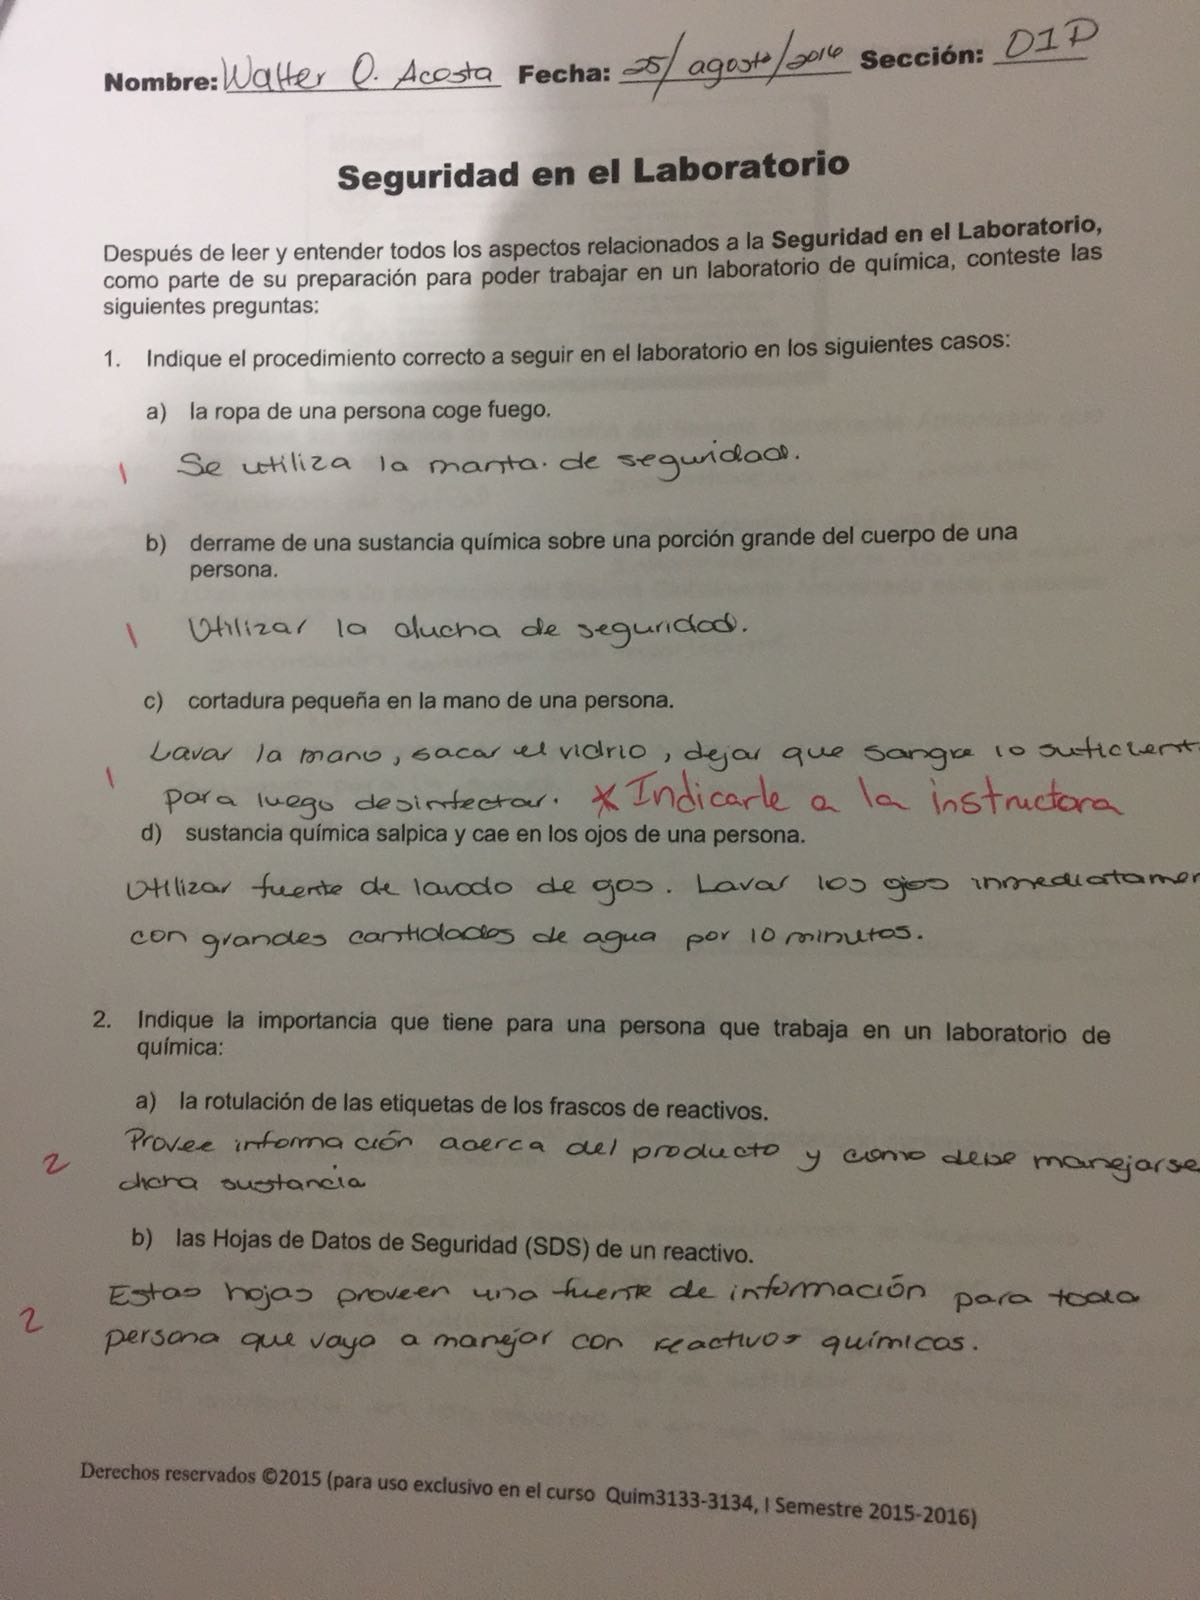 Nombre: Walter O. Acosta Fecha: 25/agosto/2016 Sección: D1D
Seguridad en el Laboratorio
Después de leer y entender todos los aspectos relacionados a la Seguridad en el Laboratorio,
como parte de su preparación para poder trabajar en un laboratorio de química, conteste las
siguientes preguntas:
1. Indique el procedimiento correcto a seguir en el laboratorio en los siguientes casos:
a) la ropa de una persona coge fuego.
1 Se utiliza la manta de seguridad.
b) derrame de una sustancia química sobre una porción grande del cuerpo de una
persona.
1 Utilizar la ducha de seguridad.
c) cortadura pequeña en la mano de una persona.
Lavar la mano, sacar el vidrio, dejar que sangre lo suficient
1 para luego desinfectar. * Indicarle a la instructora
d) sustancia química salpica y cae en los ojos de una persona.
Utilizar fuente de lavado de gos. Lavar los ojos inmediatamen
con grandes cantidades de agua por 10 minutos.
2. Indique la importancia que tiene para una persona que trabaja en un laboratorio de
química:
a) la rotulación de las etiquetas de los frascos de reactivos.
Provee información acerca del producto y como debe manejarse
2 dicha sustancia
b) las Hojas de Datos de Seguridad (SDS) de un reactivo.
Estas hojas proveen una fuente de información para toda
2 persona que vaya a manejar con reactivos químicos.
Derechos reservados ©2015 (para uso exclusivo en el curso Quim3133-3134, I Semestre 2015-2016)